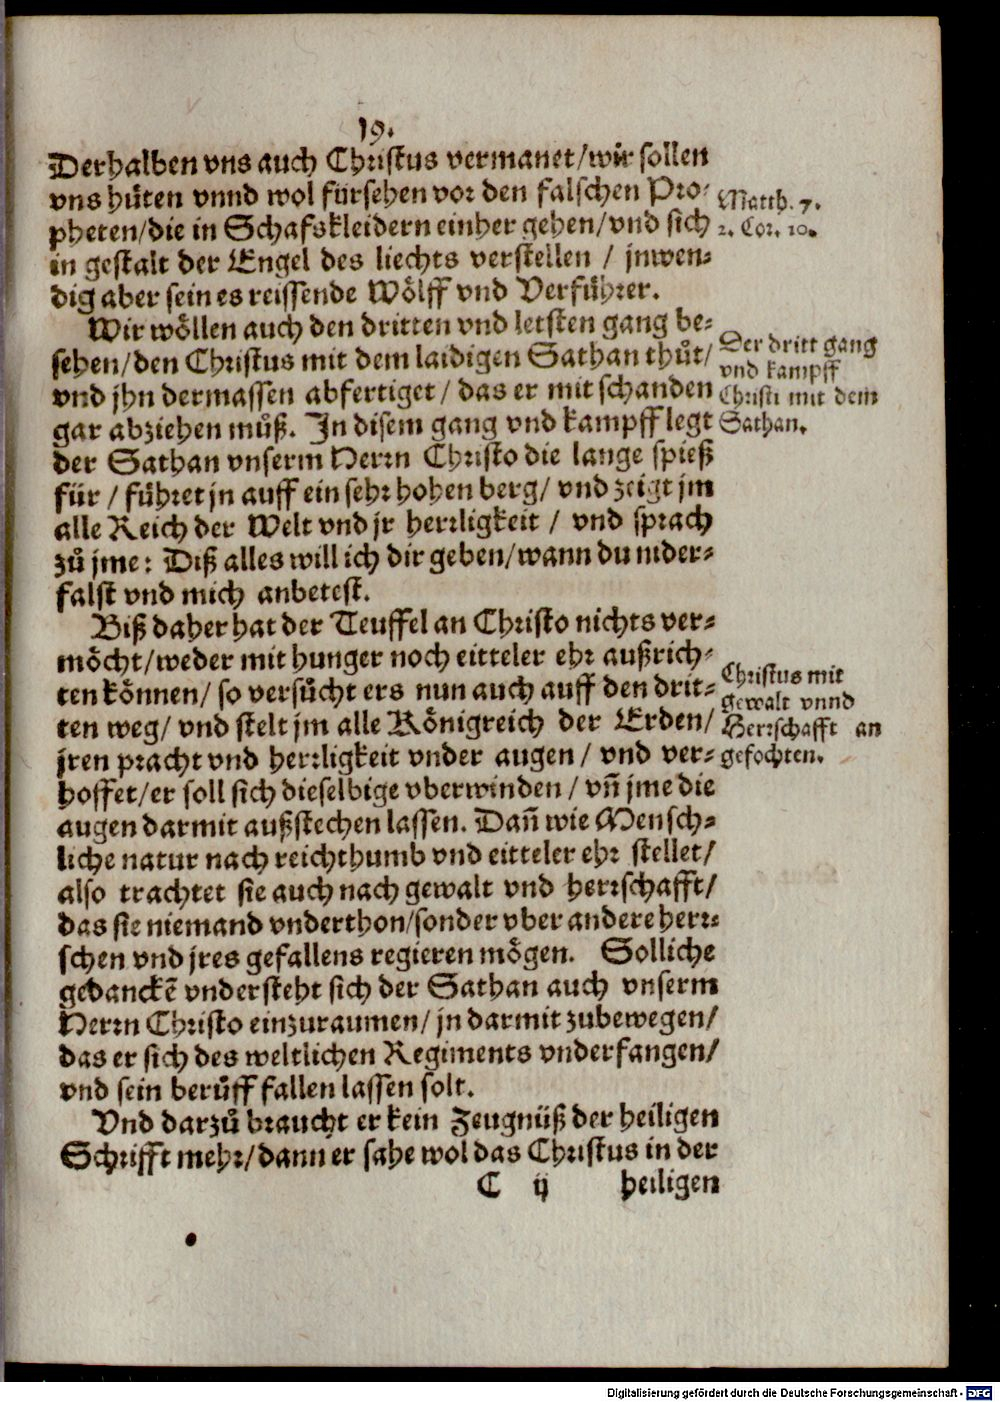 19.
Derhalben vns auch Christus vermanet/wir sollen
vns hůten vnnd wol fürsehen vor den falschen Pro-
Matth. 7.
pheten/die in Schafskleidern einher gehen/vnd sich
2. Cor. 10.
in gestalt der Engel des liechts verstellen / jnwen-
dig aber sein es reissende Wölff vnd Verführer.
Wir wöllen auch den dritten vnd letsten gang be-
sehen/den Christus mit dem laidigen Sathan thůt/
Der dritt gang
vnd kampff
vnd jhn dermassen abfertiget / das er mit schanden
Christi mit dem
gar abziehen můß. In disem gang vnd kampff legt
Sathan.
der Sathan vnserm Herrn Christo die lange spieß
für / führet jn auff ein sehr hohen berg/ vnd zeigt jm
alle Reich der Welt vnd jr herrligkeit / vnd sprach
zů jme: Diß alles will ich dir geben/wann du nider-
falst vnd mich anbetest.
Biß daher hat der Teuffel an Christo nichts ver-
möcht/weder mit hunger noch eitteler ehr außrich-
Christus mit
ten können/ so versůcht ers nun auch auff den drit-
gewalt vnnd
ten weg/ vnd stelt jm alle Königreich der Erden/
Herrschafft an
jren pracht vnd herrligkeit vnder augen / vnd ver-
gefochten.
hoffet/er soll sich dieselbige vberwinden / vñ jme die
augen darmit außstechen lassen. Dañ wie Mensch-
liche natur nach reichthumb vnd eitteler ehr stellet/
also trachtet sie auch nach gewalt vnd herrschafft/
das sie niemand vnderthon/sonder vber andere herr-
schen vnd jres gefallens regieren mögen. Solliche
gedanckẽ vndersteht sich der Sathan auch vnserm
Herrn Christo einzuraumen/ jn darmit zubewegen/
das er sich des weltlichen Regiments vnderfangen/
vnd sein berůff fallen lassen solt.
Vnd darzů braucht er kein Zeugnüß der heiligen
Schrifft mehr/dann er sahe wol das Christus in der
C ij heiligen
Digitalisierung gefördert durch die Deutsche Forschungsgemeinschaft - DFG